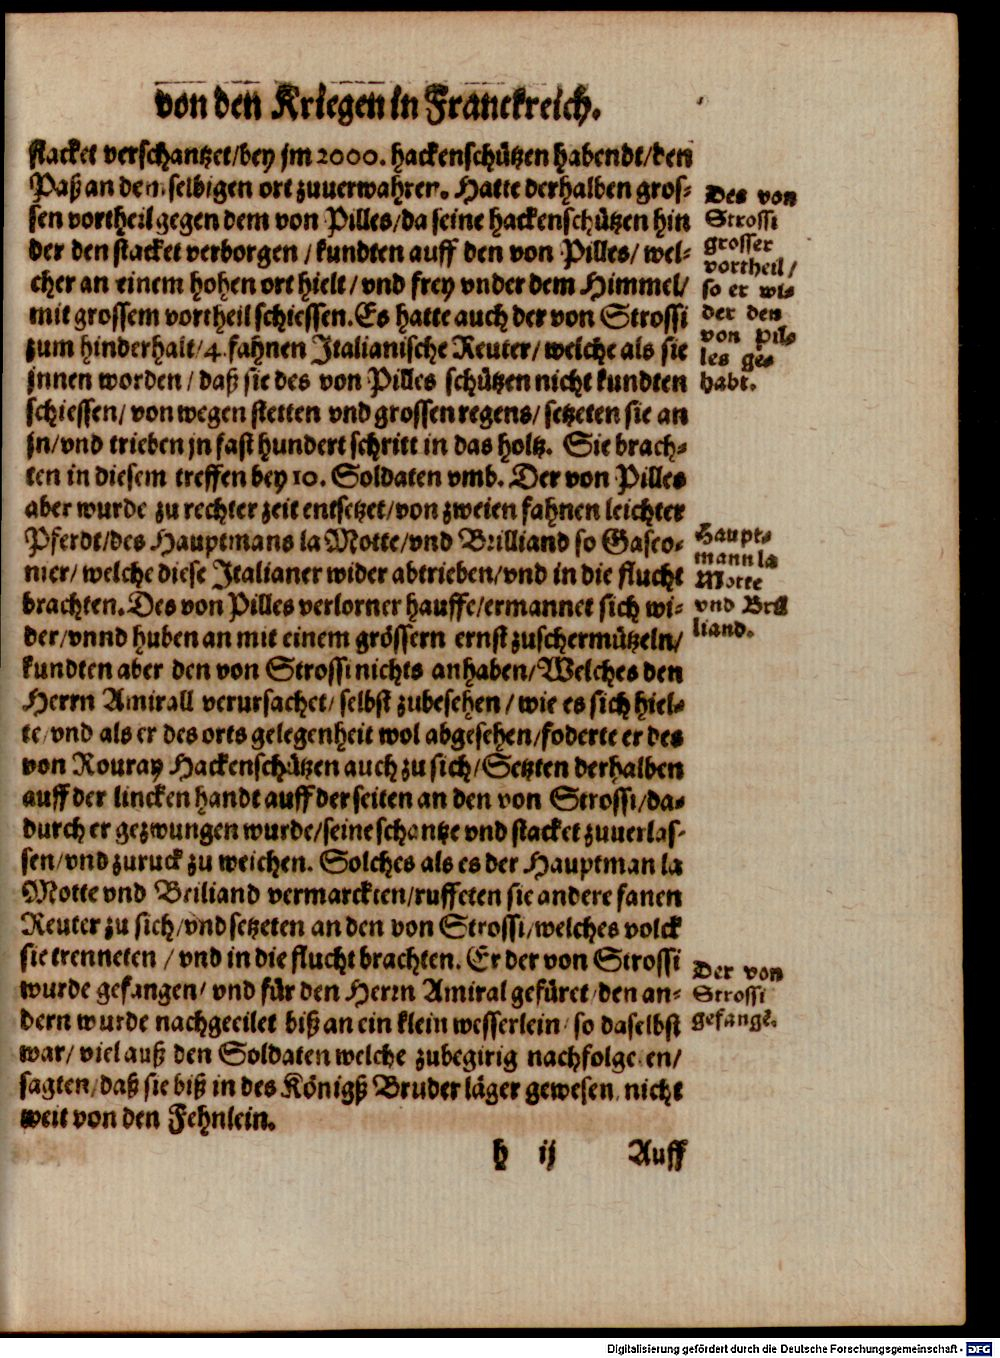 von den Kriegen in Franckreich.
stacket verschantzet/bey jm 2000. hackenschützen habendt/den
Paß an dem selbigen ort zuuerwahren. Hatte derhalben gros-
sen vortheil gegen dem von Pilles/da seine hackenschützen hin
der den stacket verborgen / kundten auff den von Pilles/ wel-
cher an einem hohen ort hielt/ vnd frey vnder dem Himmel/
mit grossem vortheil schiessen. Es hatte auch der von Strossi
zum hinderhalt/4. fahnen Italianische Reuter/ welche als sie
jnnen worden / daß sie des von Pilles schützen nicht kundten
schiessen/ von wegen stetten vnd grossen regens/ setzeten sie an
jn/vnd trieben jn fast hundert schritt in das holtz. Sie brach-
ten in diesem treffen bey 10. Soldaten vmb. Der von Pilles
aber wurde zu rechter zeit entsetzet/von zweien fahnen leichter
Pferdt/des Hauptmans la Motte/vnd Brilliand so Gasco-
nier/ welche diese Italianer wider abtrieben/vnd in die flucht
brachten. Des von Pilles verlorner hauffe/ermannet sich wi-
der/vnnd huben an mit einem grössern ernst zuschermützeln/
kundten aber den von Strossi nichts anhaben/Welches den
Herrn Amirall verursachet/ selbst zubesehen / wie es sich hiel-
te/vnd als er des orts gelegenheit wol abgesehen/foderte er des
von Rouray Hackenschützen auch zu sich/Setzten derhalben
auff der lincken handt auff der seiten an den von Strossi/da-
durch er gezwungen wurde/seine schantze vnd stacket zuuerlas-
sen/vnd zuruck zu weichen. Solches als es der Hauptman la
Motte vnd Briliand vermarckten/ruffeten sie andere fanen
Reuter zu sich/vnd setzeten an den von Strossi/welches volck
sie trenneten / vnd in die flucht brachten. Er der von Strossi
wurde gefangen/ vnd für den Herrn Amiral gefüret/den an-
dern wurde nachgeeilet biß an ein klein wesserlein/ so daselbst
war/ viel auß den Soldaten welche zubegirig nachfolgeten/
sagten/daß sie biß in des Königß Bruder läger gewesen/ nicht
weit von den Fehnlein.
h ij Auff
Des von
Strossi
grosser
vortheil/
so er wi-
der den
von Pil-
les ge-
habt.
Haupt-
mann la
Motte
vnd Bril
liand.
Der von
Strossi
gefangē.
Digitalisierung gefördert durch die Deutsche Forschungsgemeinschaft - DFG